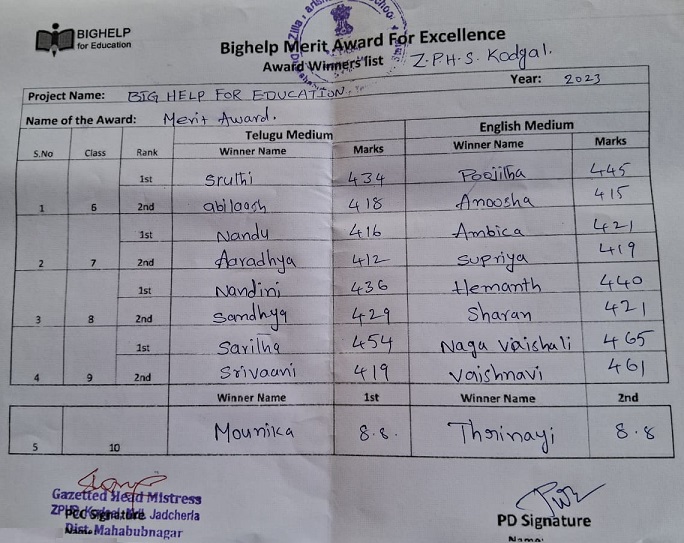 BIGHELP
for Education
Bighelp Merit Award For Excellence
Award Winners list Z.P.H.S. Kodgal.
Year: 2023
Project Name: BIG HELP FOR EDUCATION.
Name of the Award: Merit Award.
Telugu Medium English Medium
S.No Class Rank Winner Name Marks Winner Name Marks
1st Sruthi 434 Poojitha 445
1 6 2nd abilaash 418 Anoosha 415
1st Nandu 416 Ambica 421
2 7 2nd Aaradhya 412 Supriya 419
1st Nandini 436 Hemanth 440
3 8 2nd Sandhya 429 Sharan 421
1st Saritha 454 Naga Vaishali 465
4 9 2nd Srivaani 419 Vaishnavi 461
Winner Name 1st Winner Name 2nd
5 10 Mounika 8.8. Thrinayi 8.8
Gazetted Head Mistress
PCC Signature Jadcherla
Dist. Mahabubnagar
PD Signature
Name: